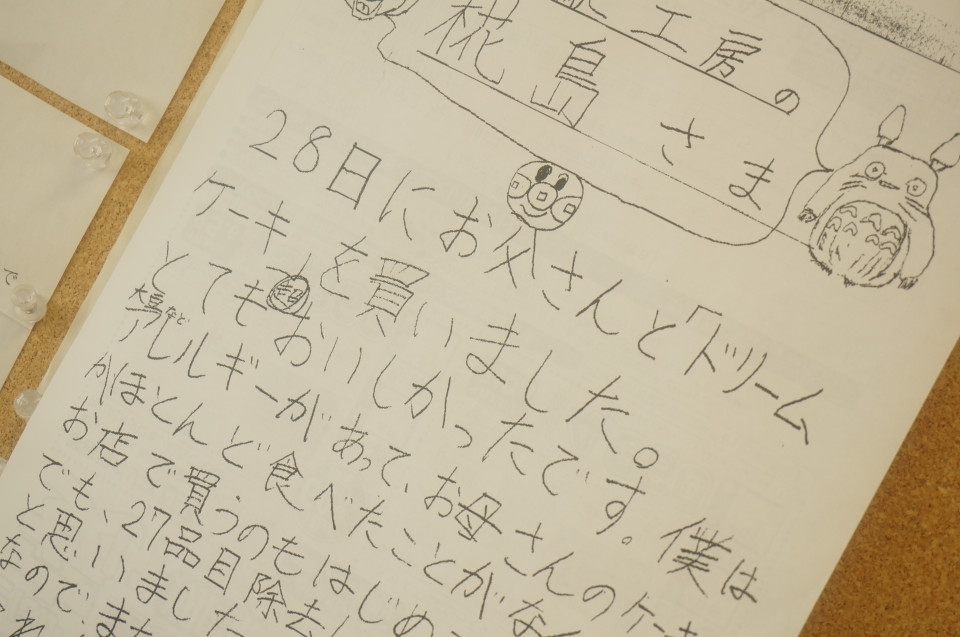 工房の
椛島さま
28日にお父さんと「ドリーム
ケーキを買いました。
とてもおいしかったです。僕は
超
大豆など
アレルギーがあって、お母さんのケーキ
がほとんど食べたことがな
お店で買うのもはじめ
でも、27品目除去
と思いました
なので、また
で